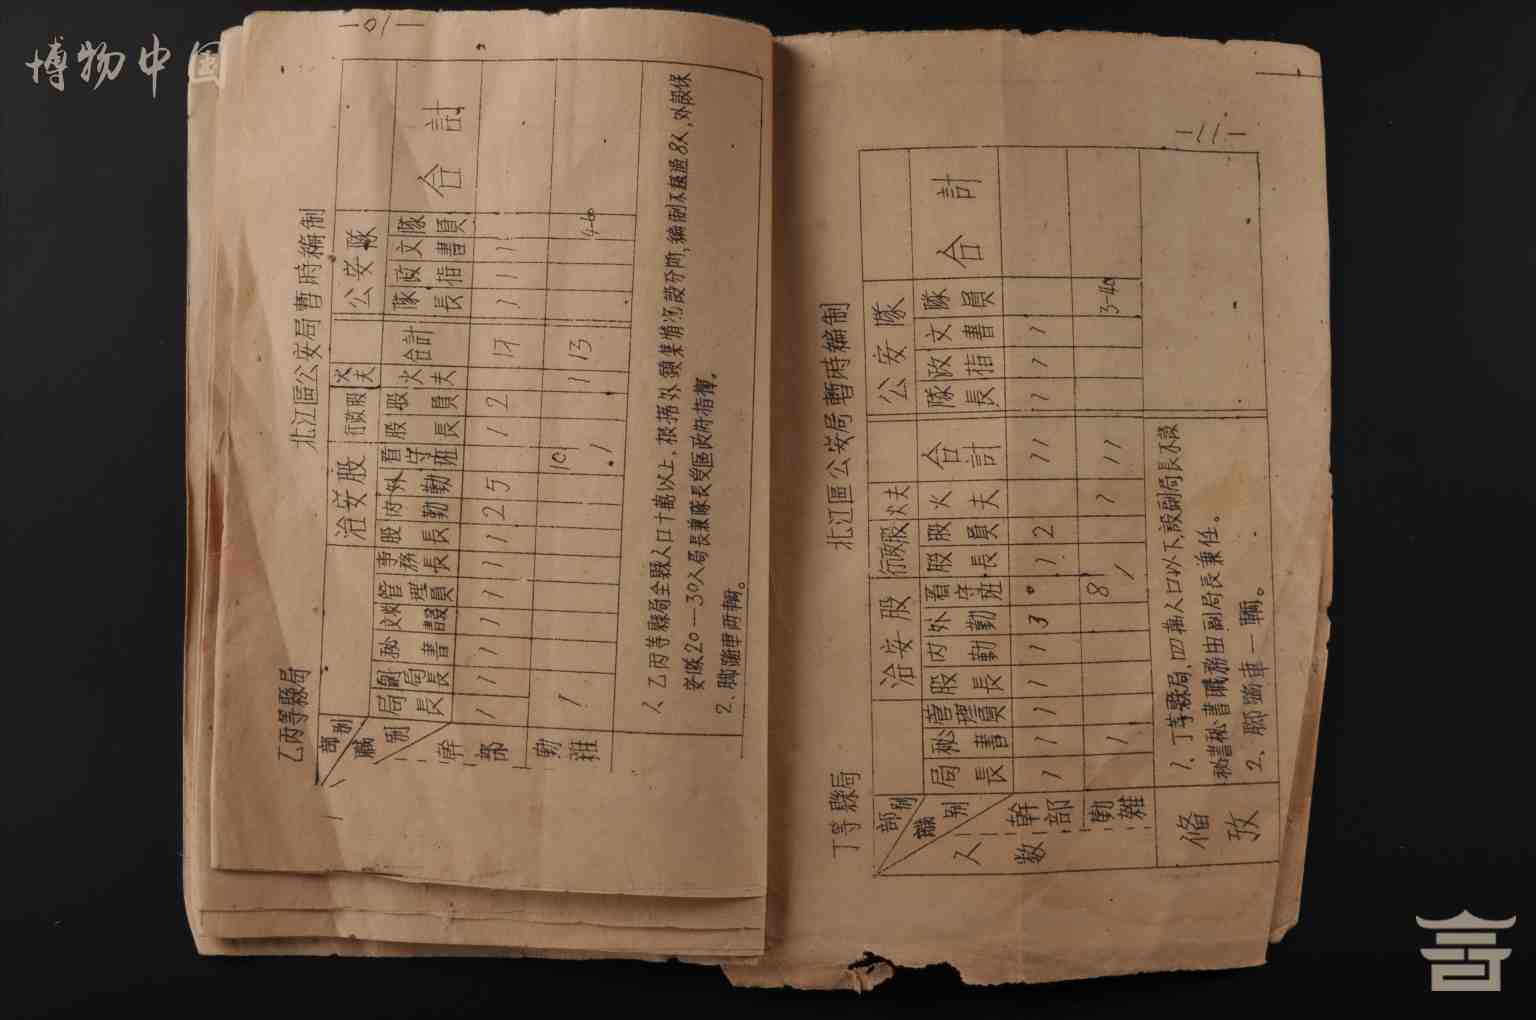 博物中国
—10—
乙丙等縣局
北江區公安局暫時編制
部别 治安股 行政股 伙夫 公安隊
職别 局長 副局長 秘書 管理員 事務長 股長 内勤 外勤 看守班 股長 股員 火夫 合計 隊長 政指 文書 隊員 合計
幹部 1 1 1 1 1 1 1 2 5 1 2 17 1 1 1
勤雜 1 10 1 1 13 4-60
1、乙丙等縣局全縣人口十萬以上,根据外鎮集情况設分所,編制不超過8人,外設保
安隊20—30人局長兼隊長受區政府指揮。
2、脚踏車两輛。
—11—
丁等縣局
北江區公安局暫時編制
部别 治安股 行政股 伙夫 公安隊
職别 局長 秘書 管理員 股長 内勤 外勤 看守班 股長 股員 火夫 合計 隊長 政指 文書 隊員 合計
人数
幹部 1 1 1 1 1 3 1 2 11 1 1 1
勤雜 1 8 1 1 11 3-40
備攷
1、丁等縣局,四萬人口以下,設副局長不設
秘書秘書職務由副局長兼任。
2、脚踏車一輛。